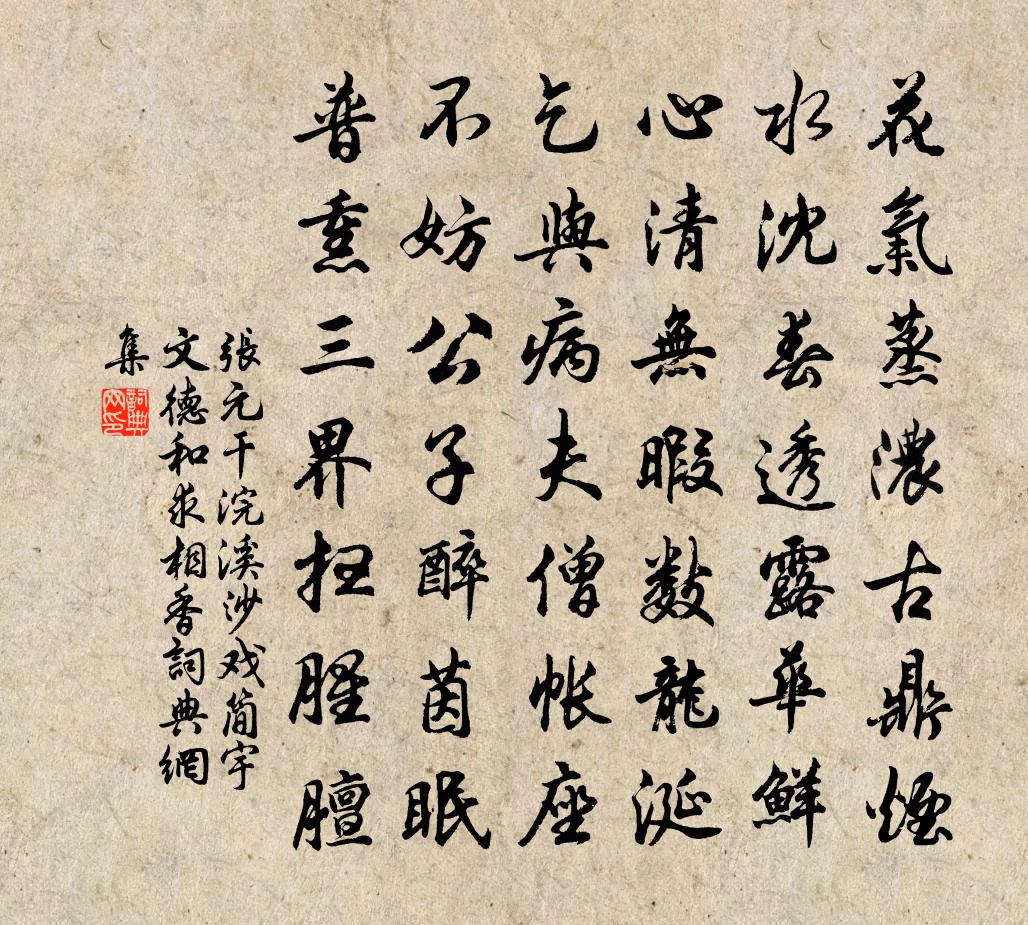 花氣蒸濃古鼎煙
水沈春透露華鮮
心清無暇數龍涎
乞與病夫僧帳座
不妨公子醉茵眠
普熏三界掃腥膻
張元干浣溪沙戏簡宇
文德和求相香詞典網
集
詞典
网印